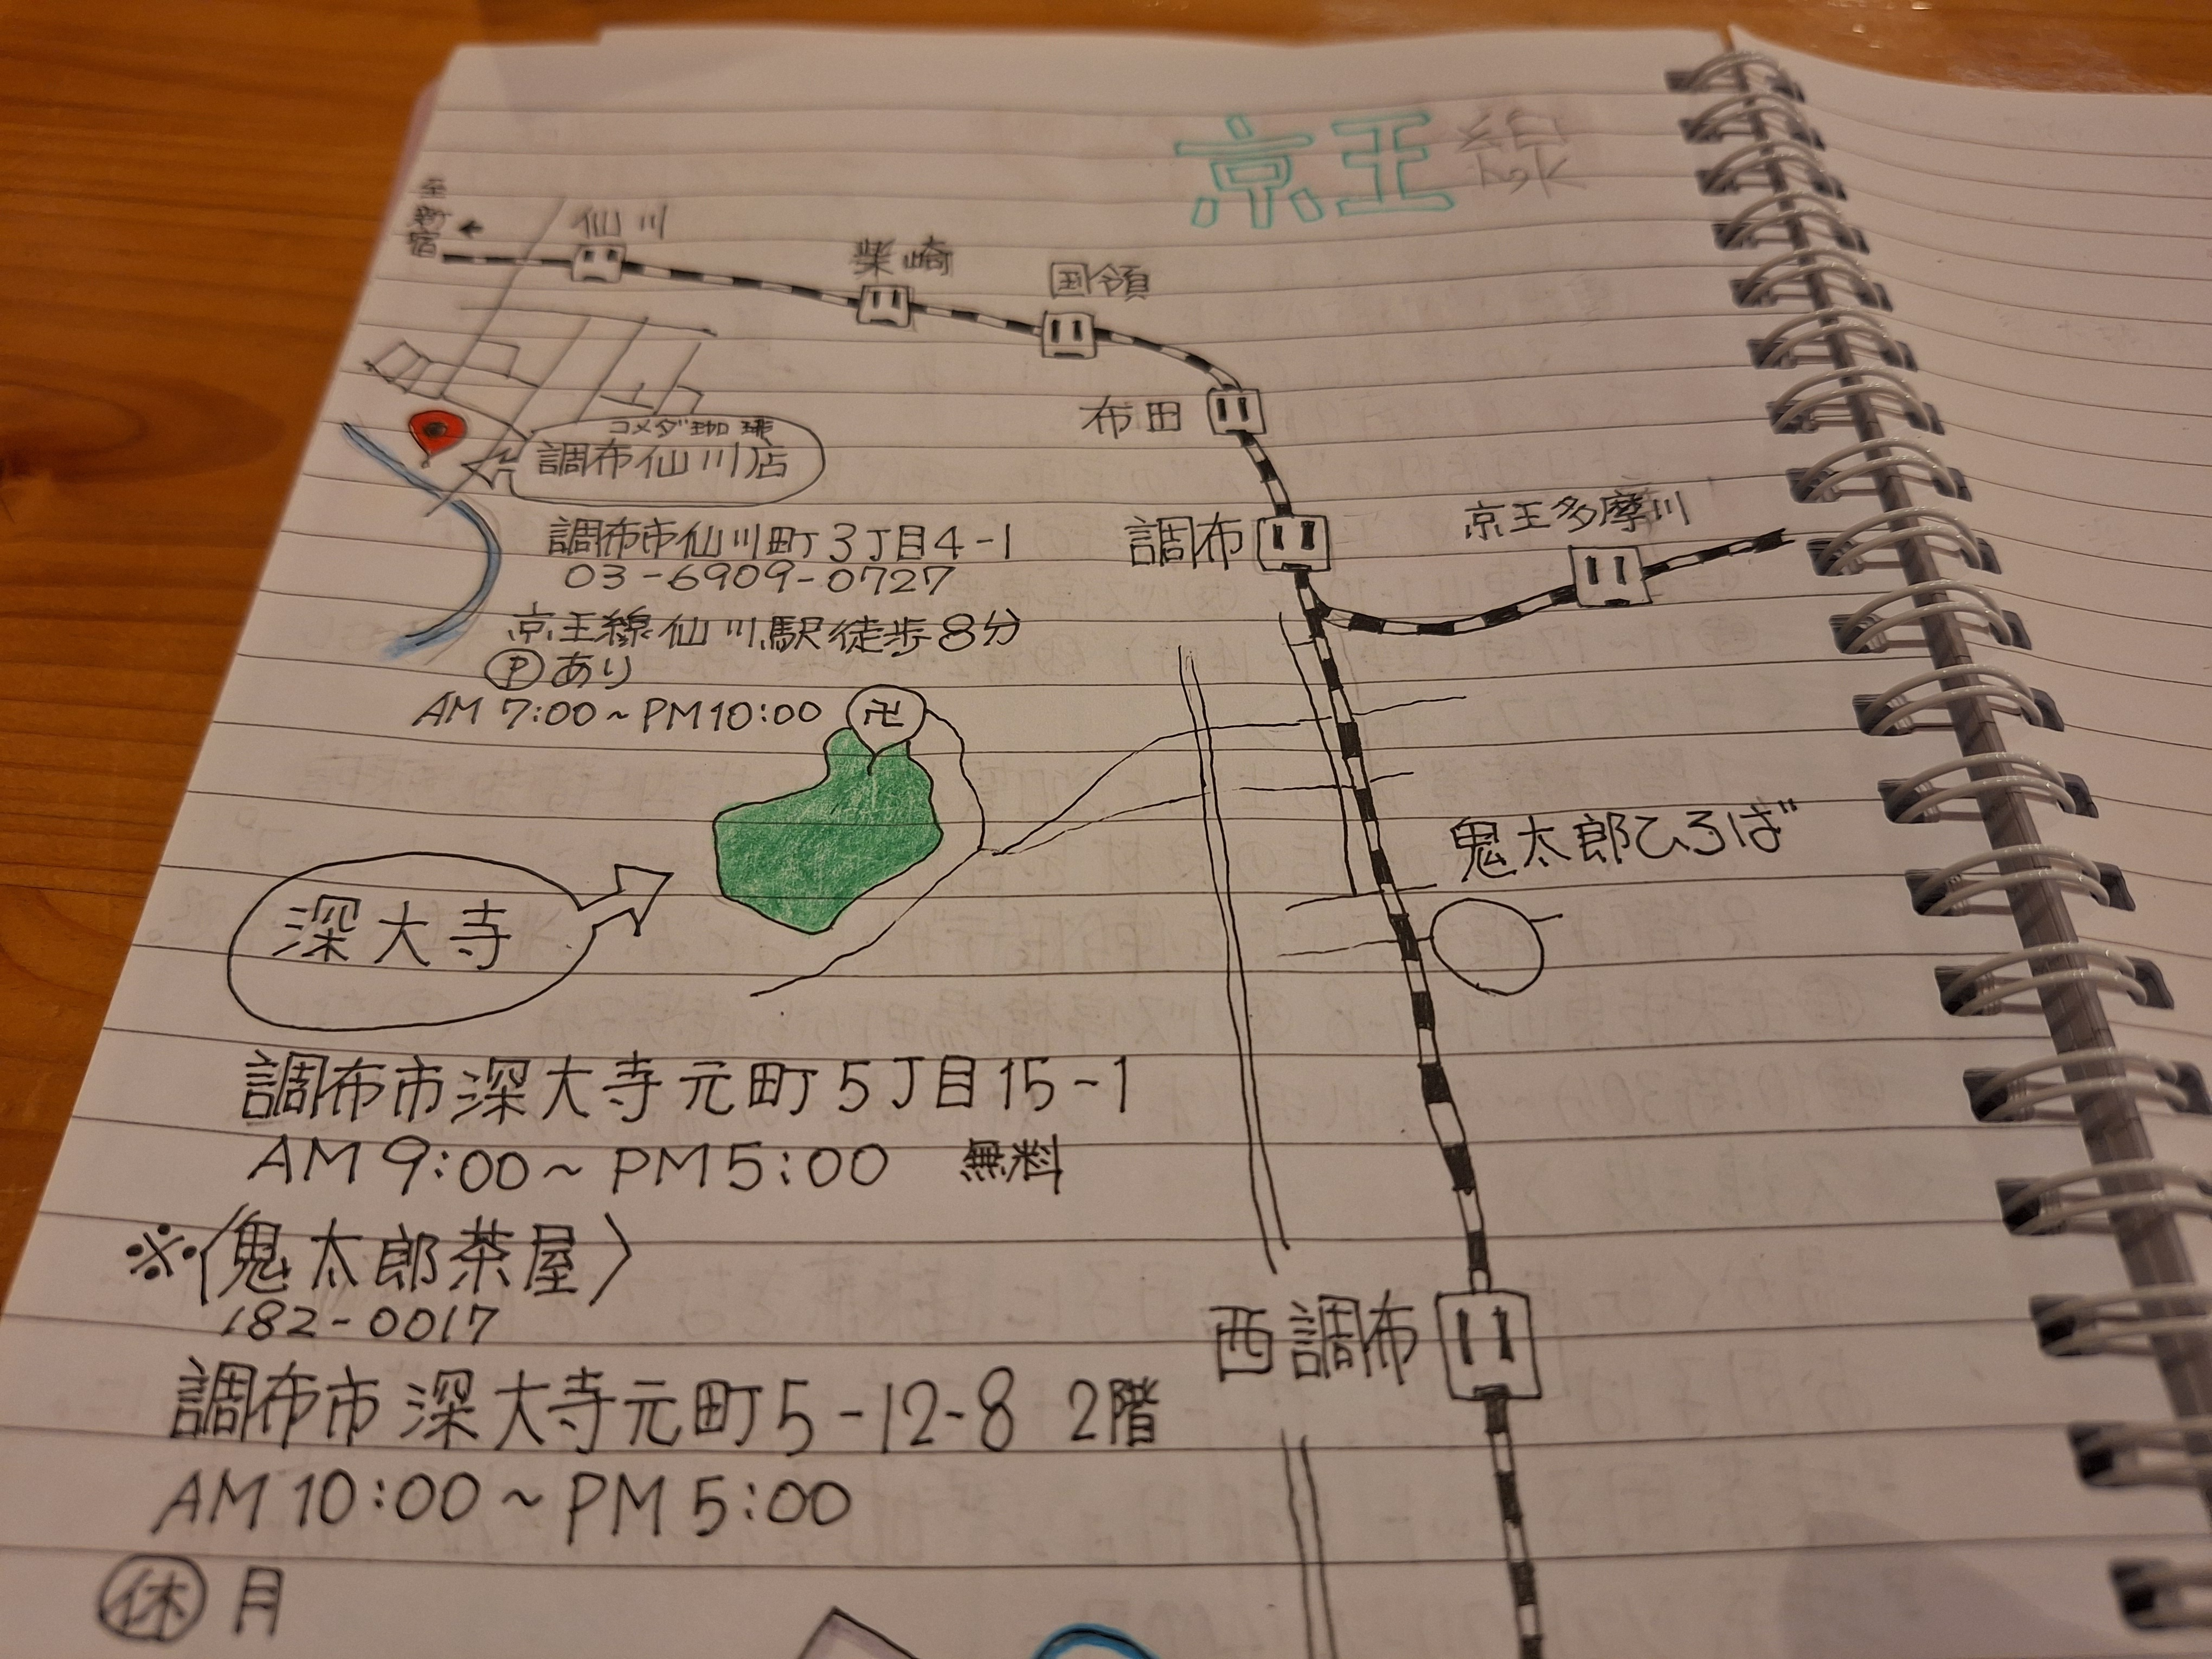 京王線
至新宿
仙川
柴崎
国領
布田
調布
京王多摩川
コメダ珈琲
調布仙川店
調布市仙川町3丁目4-1
03-6909-0727
京王線仙川駅徒歩8分
Ⓟあり
AM 7:00～PM10:00
卍
鬼太郎ひろば
深大寺
調布市深大寺元町5丁目15-1
AM 9:00～PM5:00 無料
※〈鬼太郎茶屋〉
182-0017
西調布
調布市深大寺元町5-12-8 2階
AM10:00～PM5:00
㊡月